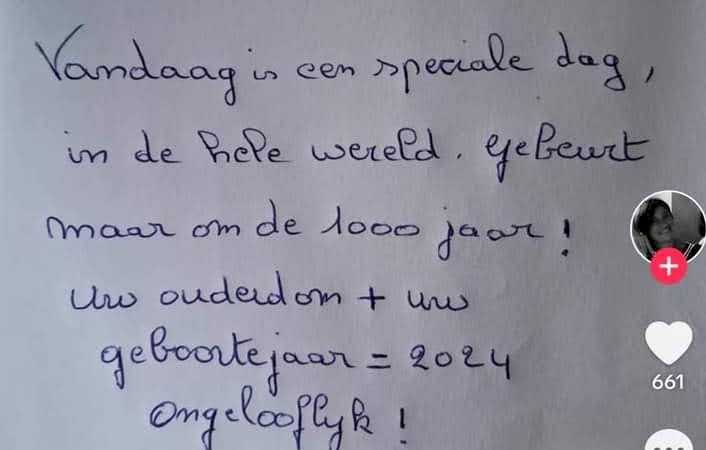 Vandaag is een speciale dag,
in de hele wereld. gebeurt
maar om de 1000 jaar!
Uw ouderdom + uw
geboortejaar = 2024
Ongelooflyk!
661